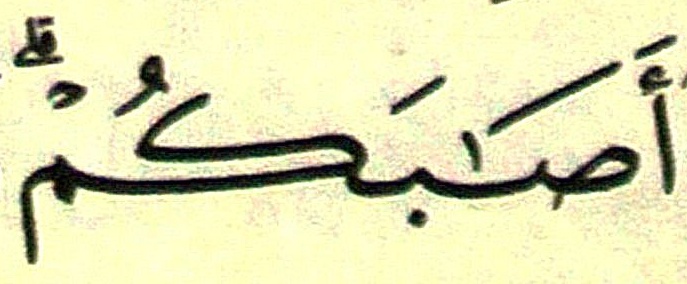 أَصَـٰبَكُمْۗ